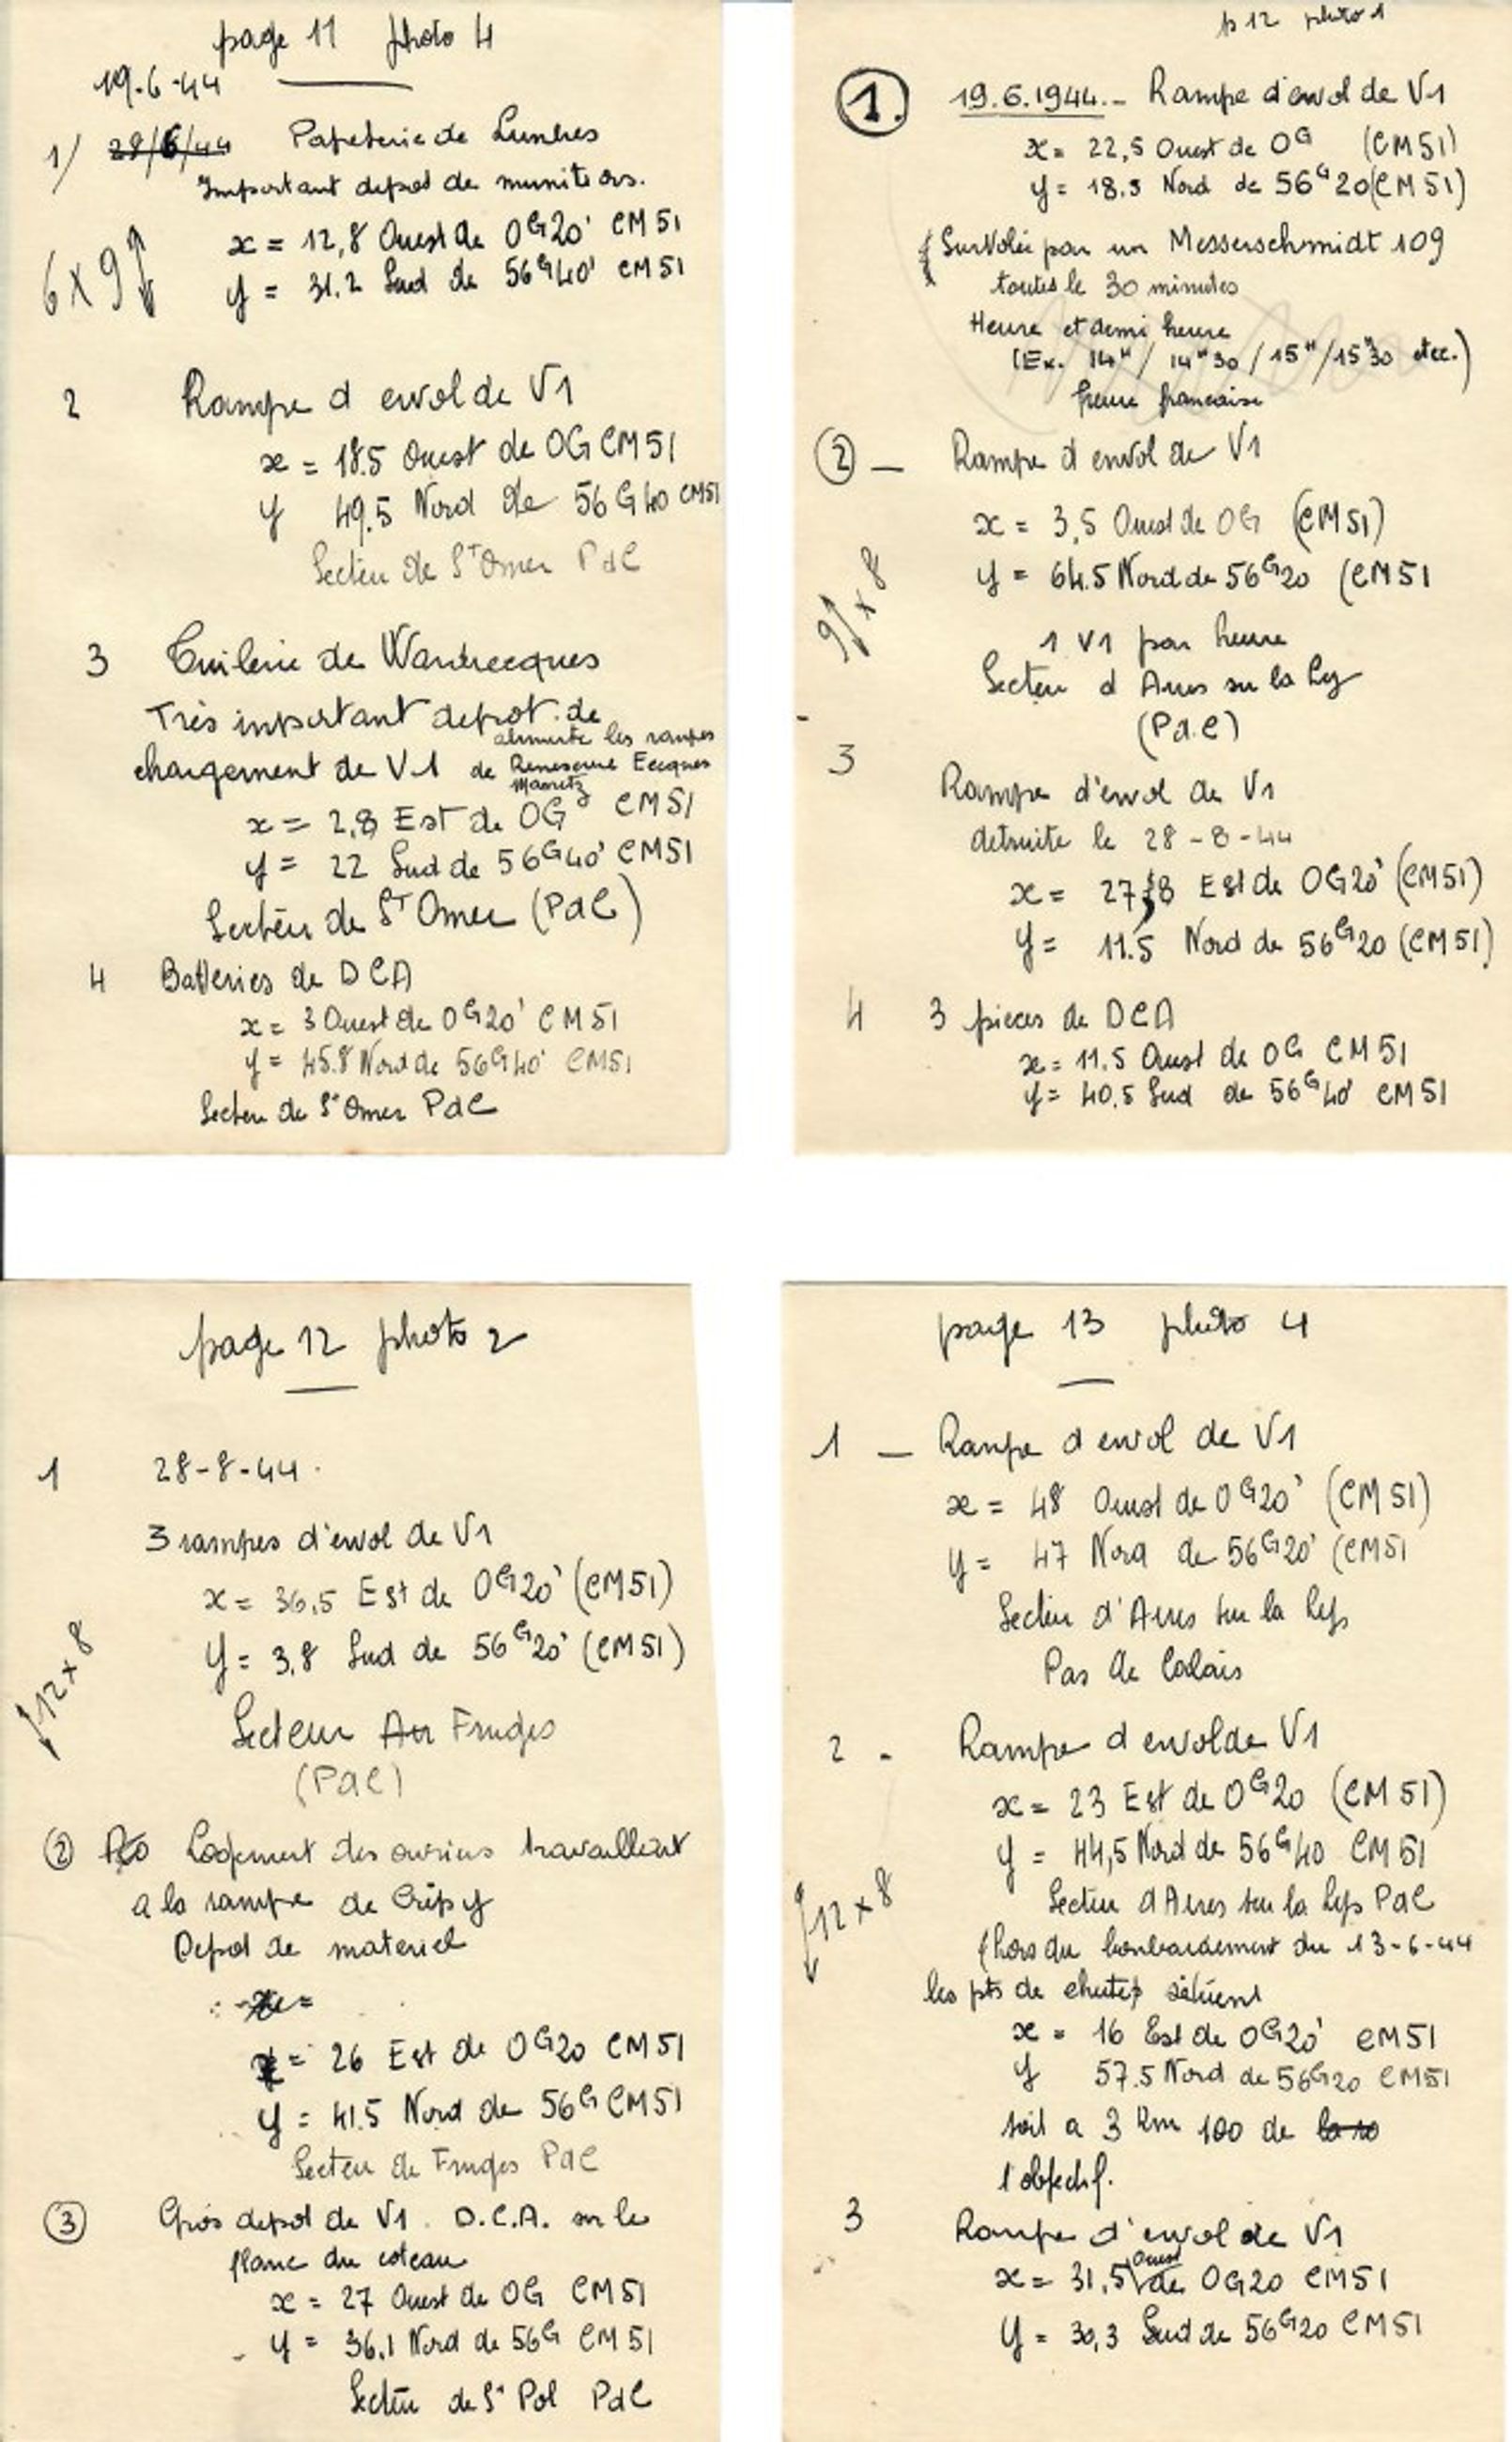 page 11 photo 4
19-6-44
1/ 28/6/44 Papeterie de Lumbres
Important depot de munitions.
x = 12,8 Ouest de 0G20' CM 51
y = 31.2 Sud de 56G40' CM 51
6 x 9
2 Rampe d envol de V1
x = 18.5 Ouest de 0G CM 51
y 49.5 Nord de 56G40 CM51
Secteur de St Omer PdC
3 Tuilerie de Wardrecques
Très important depot de
alimente les rampes
chargement de V1 de Renescure Ecques
x = 2,8 Est de 0G CM 51
y = 22 Sud de 56G40' CM51
Secteur de St Omer (PdC)
4 Batteries de DCA
x = 3 Ouest de 0G20' CM 51
y = 45.8 Nord de 56G40' CM51
Secteur de St Omer PdC
p 12 photo 1
1. 19.6.1944.- Rampe d'envol de V1
x = 22,5 Ouest de 0G (CM51)
y = 18.3 Nord de 56G20 (CM51)
(Survolée par un Messerschmidt 109
toutes le 30 minutes
Heure et demi heure
(Ex. 14H / 14H30 / 15H / 15H30 etcc.)
heure francaise
2 - Rampe d envol de V1
x = 3,5 Ouest de 0G (CM51)
y = 64.5 Nord de 56G20 (CM51
9 x 8
1 V1 par heure
Secteur d Aires sur la Lys
(Pd.C)
3
Rampe d'envol de V1
detruite le 28-8-44
x = 27,8 Est de 0G20' (CM51)
y = 11.5 Nord de 56G20 (CM51)
4 3 pieces de DCA
x = 11.5 Ouest de 0G CM 51
y = 40.5 Sud de 56G40' CM51
page 12 photo 2
1 28-8-44.
3 rampes d'envol de V1
x = 36.5 Est de 0G20' (CM51)
y = 3,8 Sud de 56G20' (CM51)
12 x 8
Secteur Fruges
(PdC)
2 Logement des ouvriers travaillent
a la rampe de Crépy
Depot de materiel
x =
x = 26 Est de 0G20 CM51
y = 41.5 Nord de 56G CM51
Secteur de Fruges PdC
3 Gros depot de V1. D.C.A. sur le
flanc du coteau
x = 27 Ouest de 0G CM51
y = 36.1 Nord de 56G CM51
Secteur de St Pol PdC
page 13 photo 4
1 - Rampe d envol de V1
x = 48 Ouest de 0G20' (CM51)
y = 47 Nord de 56G20' (CM51
Secteur d'Aires sur la Lys
Pas de Calais
2 - Rampe d envol de V1
x = 23 Est de 0G20 (CM51)
y = 44,5 Nord de 56G40 CM51
Secteur d'Aires sur la Lys PdC
12 x 8
(Lors du bombardement du 13-6-44
les pts de chutes
x = 16 Est de 0G20' CM51
y 57.5 Nord de 56G20 CM51
soit a 3 Km 100 de
l'objectif.
3 Rampe d'envol de V1
x = 31,5 Ouest de 0G20 CM51
y = 30,3 Sud de 56G20 CM51